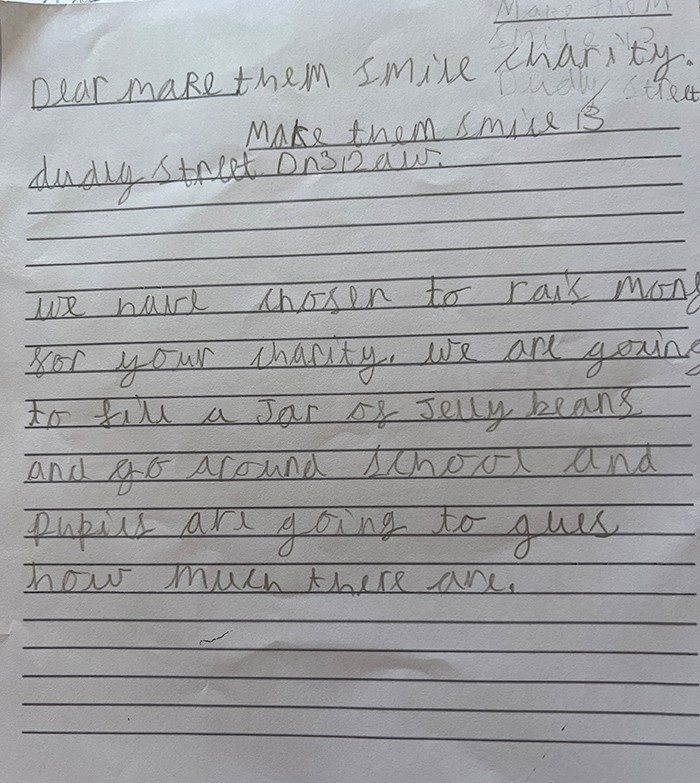 Make them
smile 13
Dudly street
Dear make them smile charity.
Make them smile 13
dudly street Dn312aw.
we have chosen to rais mony
for your charity. we are going
to fill a Jar of Jelly beans
and go around school and
pupils are going to gues
how much there are.